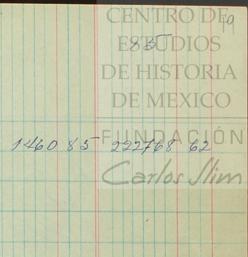 CENTRO DE
ESTUDIOS
DE HISTORIA
DE MEXICO
FUNDACIÓN
1460 85 222768 62
Carlos Slim